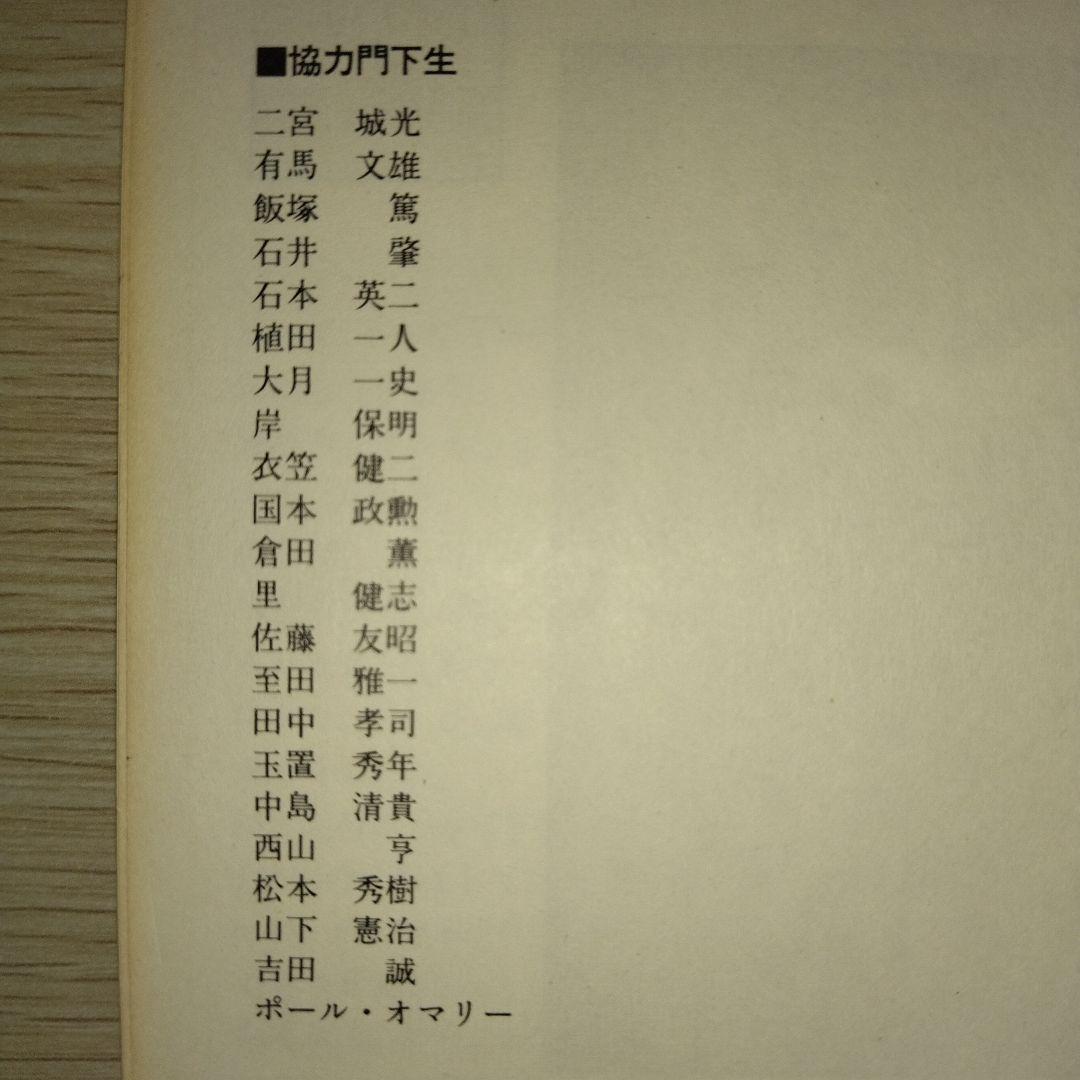 ■協力門下生
二宮　城光
有馬　文雄
飯塚　　篤
石井　　肇
石本　英二
植田　一人
大月　一史
岸　　保明
衣笠　健二
国本　政勲
倉田　　薫
里　　健志
佐藤　友昭
至田　雅一
田中　孝司
玉置　秀年
中島　清貴
西山　　亨
松本　秀樹
山下　憲治
吉田　　誠
ポール・オマリー